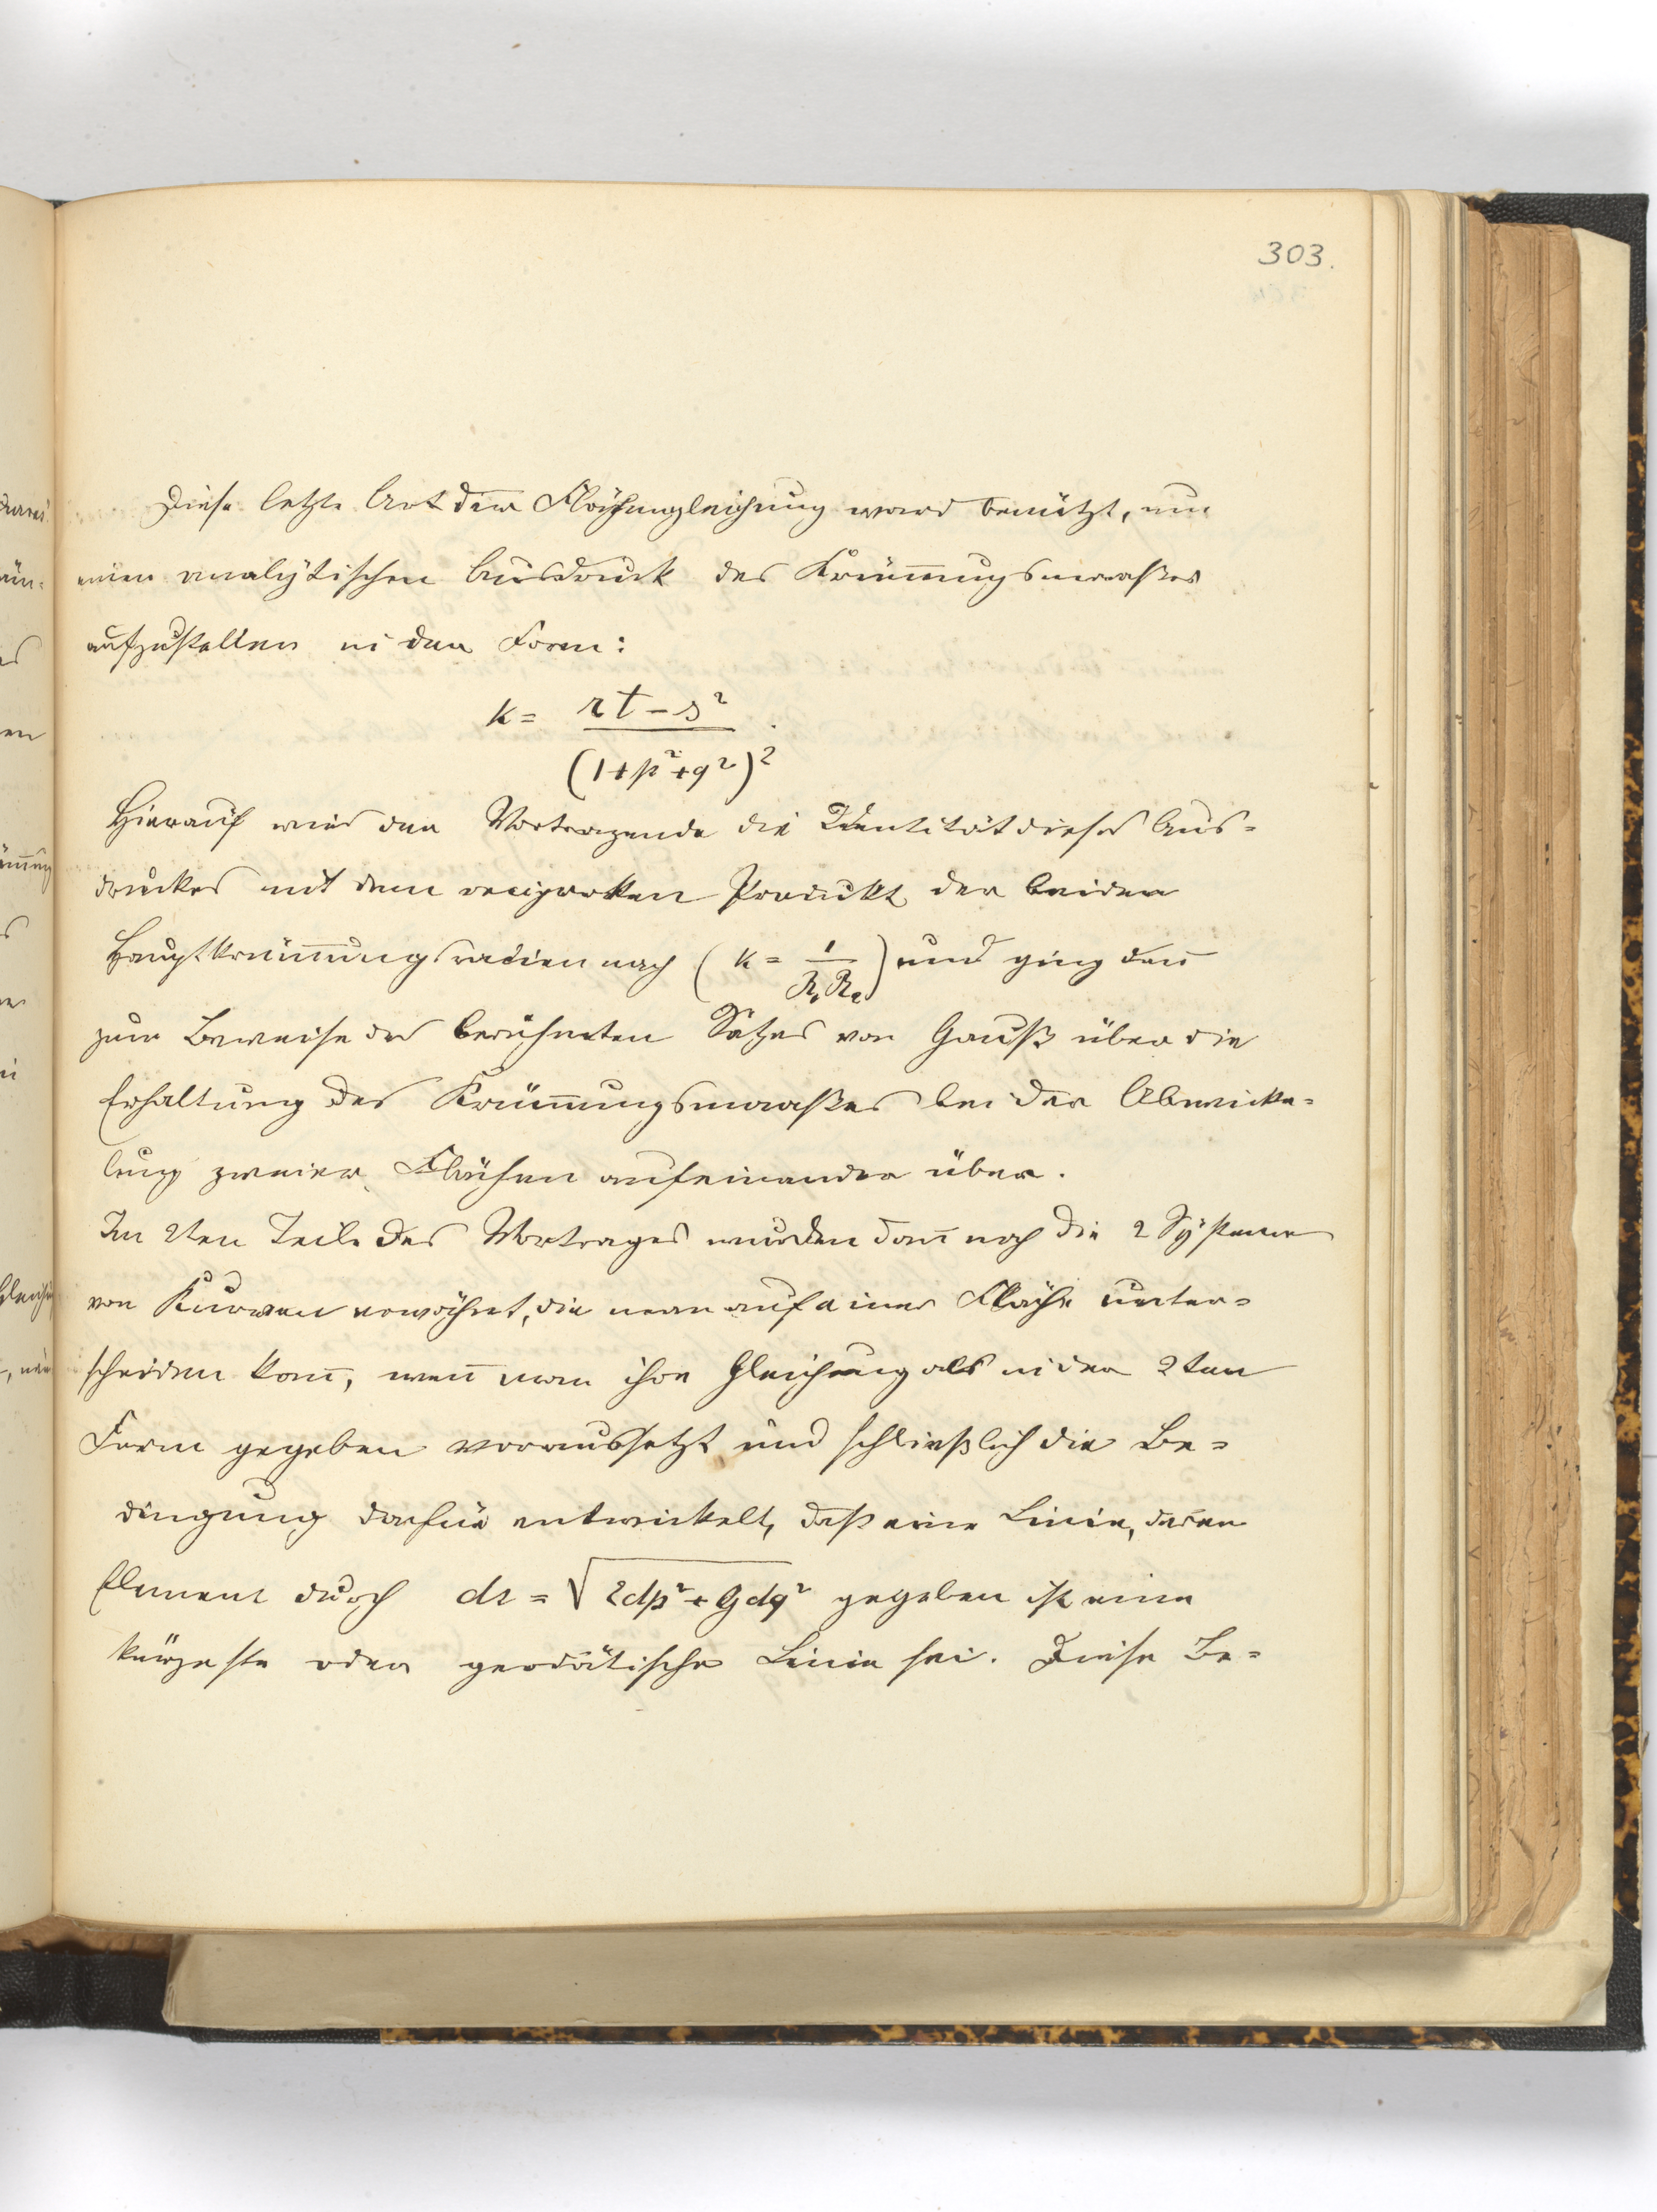 303.
Diese letzte Art der Flächengleichung ward benützt, um
einen analytischen Ausdruck des Krüm̄ungsmaaßes
aufzustellen in der Form:
k = rt - s²
(1+p²+q²)²
Hierauf wies der Vortragende die Identität dieses Aus=
druckes mit dem reciproken Produkt der beiden
Hauptkrüm̄ungsradien nach (k = 1/R₁R₂) und ging dan̄
zum Beweise des berühmten Satzes von Gauß über die
Erhaltung des Krüm̄ungsmaaßes bei der Abwicke=
lung zweier Flächen aufeinander über.
Im 2ten Teile des Vortrages wurden dan̄ noch die 2 Systeme
von Kurven erwähnt, die man auf einer Fläche unter=
scheiden kan̄, wen̄ man ihre Gleichung als in der 2ten
Form gegeben voraussetzt und schließlich die Be=
dingung dafür entwickelt, daß eine Linie, deren
Element durch ds = √(Edp² + Gdq²) gegeben ist eine
kürzeste oder geodätische Linie sei. Diese Be=